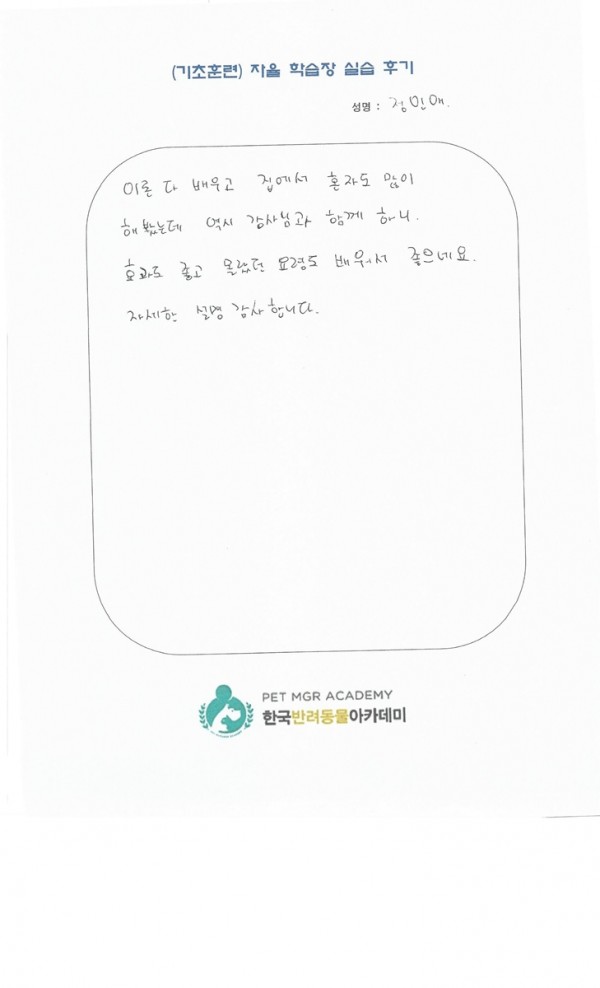 (기초훈련) 자율 학습장 실습 후기
성명 : 정민애.
이론 다 배우고 집에서 혼자도 많이
해봤는데 역시 강사님과 함께 하니.
효과도 좋고 몰랐던 요령도 배워서 좋으네요.
자세한 설명 감사합니다.
PET MGR ACADEMY
한국반려동물아카데미